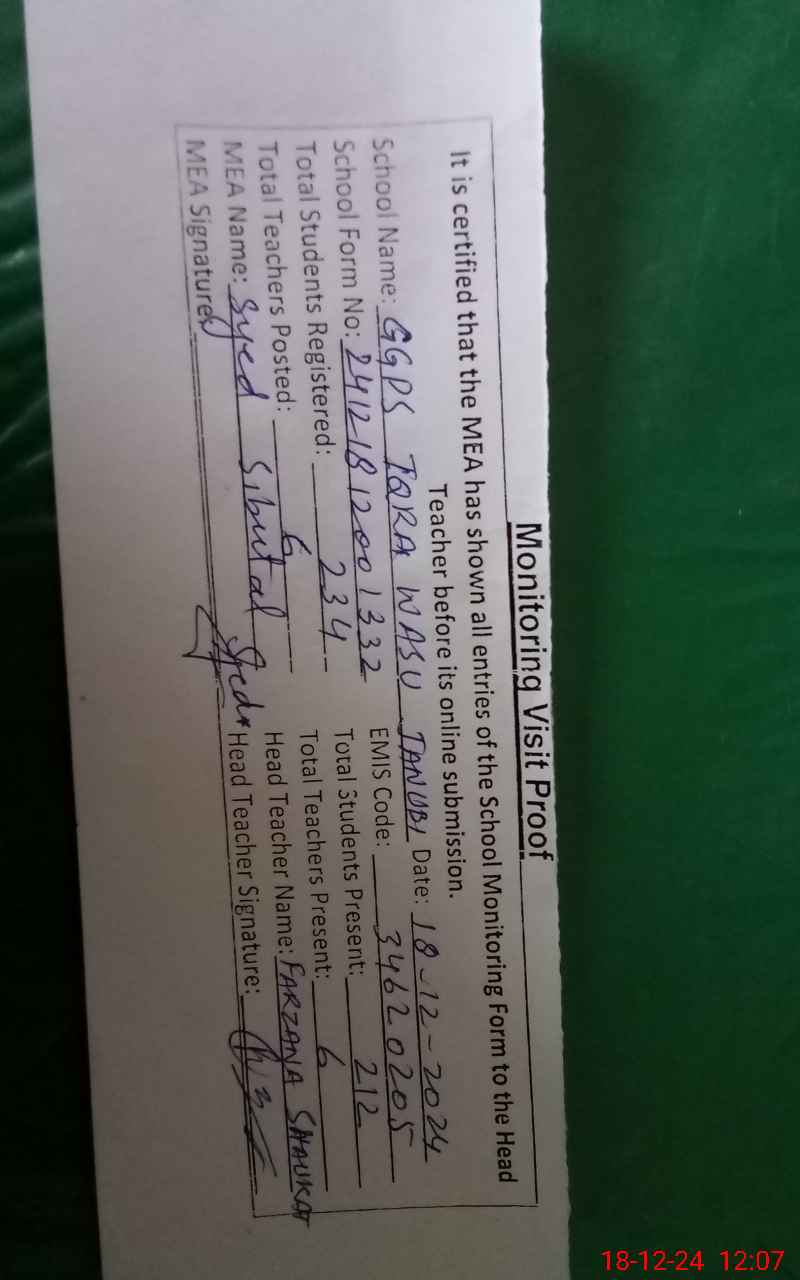 Monitoring Visit Proof
It is certified that the MEA has shown all entries of the School Monitoring Form to the Head
Teacher before its online submission.
School Name: GGPS IQRA WASU TANUBI Date: 18-12-2024
School Form No: 2412181200 1332 EMIS Code: 34620205
Total Students Registered: 234 Total Students Present: 212
Total Teachers Posted: 6 Total Teachers Present: 6
MEA Name: Syed Sibutal Head Teacher Name: FARZANA SHAUKAT
MEA Signature: Head Teacher Signature:
18-12-24 12:07